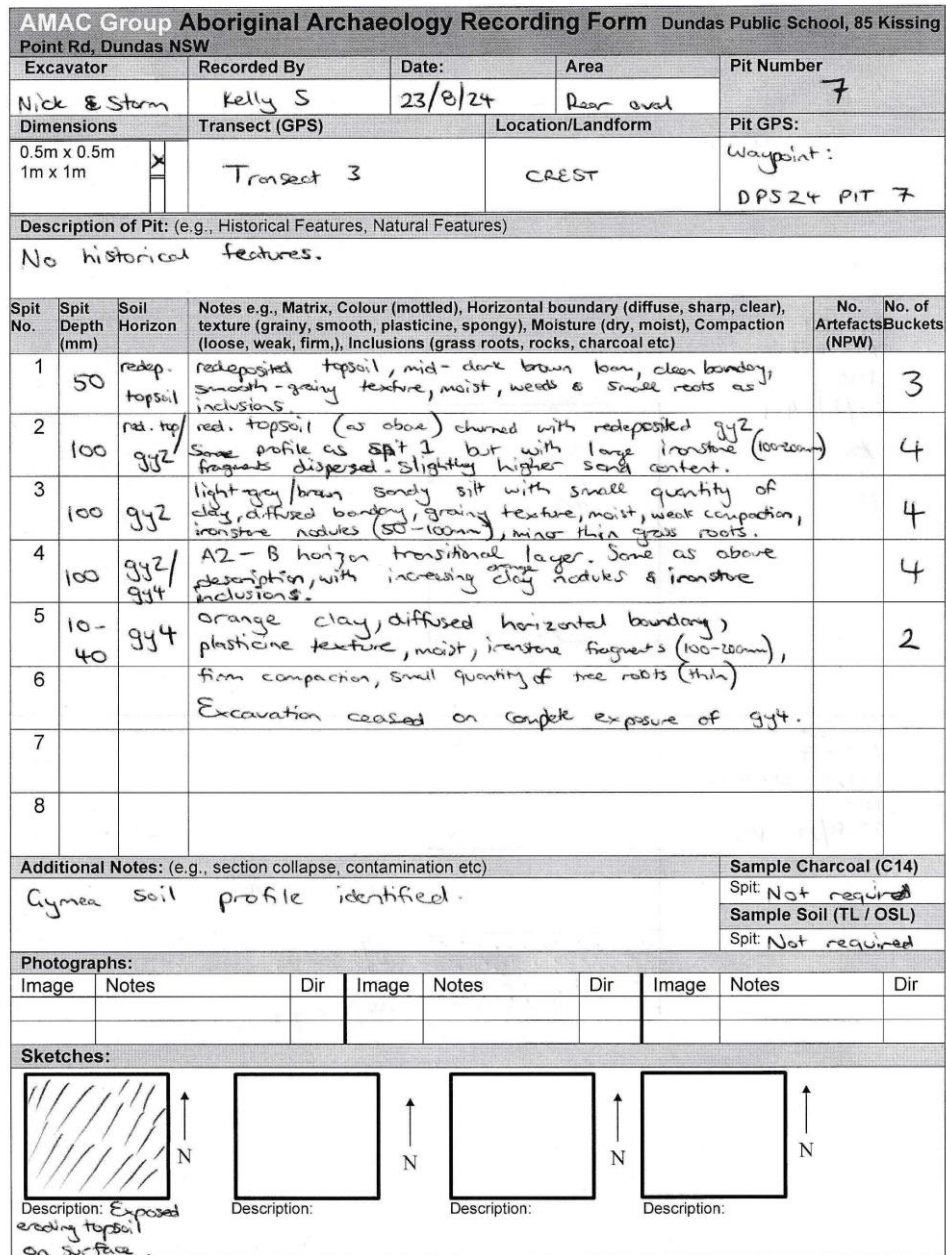 AMAC Group Aboriginal Archaeology Recording Form Dundas Public School, 85 Kissing
Point Rd, Dundas NSW
Excavator Recorded By Date: Area Pit Number
Nick & Storm Kelly S 23/8/24 Rear oval 7
Dimensions Transect (GPS) Location/Landform Pit GPS:
0.5m x 0.5m X
1m x 1m
Transect 3 CREST Waypoint:
DPS24 PIT 7
Description of Pit: (e.g., Historical Features, Natural Features)
No historical features.
Spit No. Spit Depth (mm) Soil Horizon Notes e.g., Matrix, Colour (mottled), Horizontal boundary (diffuse, sharp, clear),
texture (grainy, smooth, plasticine, spongy), Moisture (dry, moist), Compaction
(loose, weak, firm,), Inclusions (grass roots, rocks, charcoal etc) No. Artefacts (NPW) No. of Buckets
1 50 redep. topsoil redeposited topsoil, mid-dark brown loam, clear bondary,
smooth-grainy texture, moist, weeds & small roots as
inclusions. 3
2 100 red. top/ gy2 red. topsoil (as above) churned with redeposited gy2
Same profile as spit 1 but with large ironstone (100-200mm)
fragments dispersed. Slightly higher sand content. 4
3 100 gy2 light-grey/brown sandy silt with small quantity of
clay, diffused bondary, grainy texture, moist, weak compaction,
ironstone nodules (50-100mm), minor thin grass roots. 4
4 100 gy2/ gy4 A2-B horizon transitional layer. Same as above
description, with increasing orange clay nodules & ironstone
inclusions. 4
5 10-40 gy4 orange clay, diffused horizontal boundary,
plasticine texture, moist, ironstone fragments (100-200mm), 2
6 firm compaction, small quantity of tree roots (thin)
Excavation ceased on complete exposure of gy4.
7
8
Additional Notes: (e.g., section collapse, contamination etc) Sample Charcoal (C14)
Gymea soil profile identified. Spit: Not required
Sample Soil (TL / OSL)
Spit: Not required
Photographs:
Image Notes Dir Image Notes Dir Image Notes Dir
Sketches:
N N N N
Description: Exposed Description: Description: Description:
eroding topsoil
on surface.